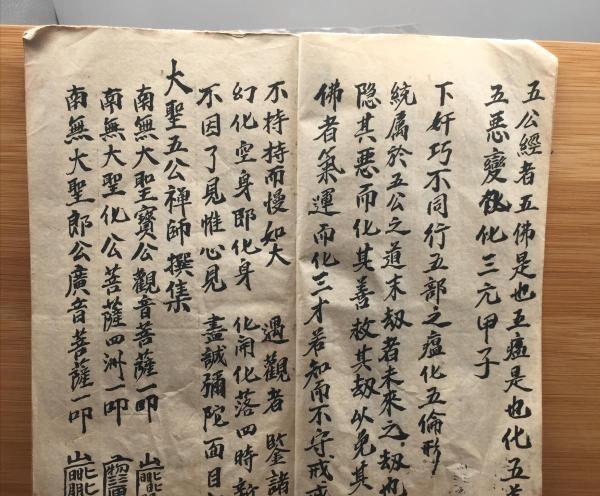 五公經者五佛是也五瘟是也化五道
五惡變化三元甲子
下奸巧不同行五部之瘟化五倫形
統属於五公之道末刼者未來之刼也
隐其惡而化其善救其刼以免其
佛者氣運而化三才若知而不守戒
不持持而慢如大 遇觀者 鑒諸
幻化空身即化身 化開化落四時
不因了見惟心見 盡誠彌陀面目
大聖五公禅師撰集
南無大聖寳公觀音菩薩一叩
南無大聖化公菩薩四洲一叩
南無大聖郎公廣音菩薩一叩